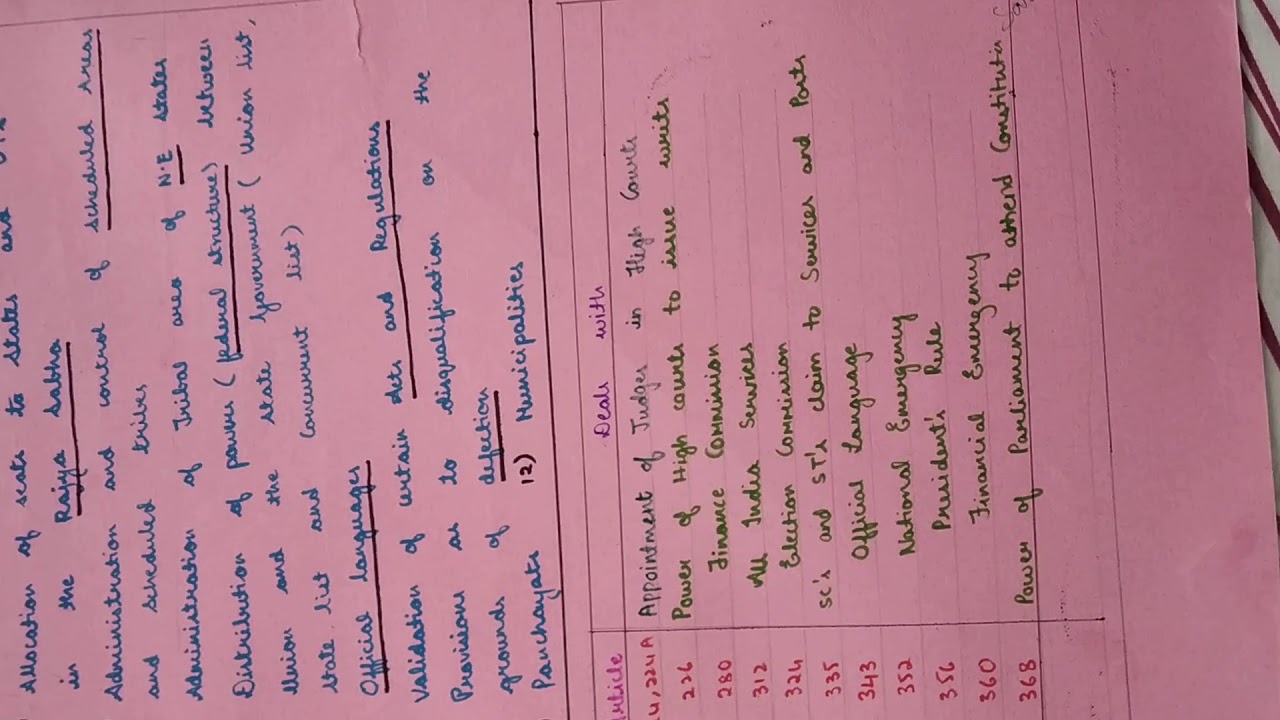 Allocation of seats to states and
in the Rajya Sabha
Administration and control of scheduled areas
and scheduled tribes
Administration of Tribal areas of N.E states
Distribution of power (federal structure) between
Union and the state government (union list,
state list and concurrent list)
Official languages
Validation of certain Acts and Regulations
Provisions as to disqualification on the
grounds of defection
Panchayats 12) Municipalities
Article Deals with
224A Appointment of Judges in High Courts
226 Power of High courts to issue writs
280 Finance Commission
312 All India Services
324 Election Commission
335 SC's and ST's claim to Services and Posts
343 Official Language
352 National Emergency
356 President's Rule
360 Financial Emergency
368 Power of Parliament to